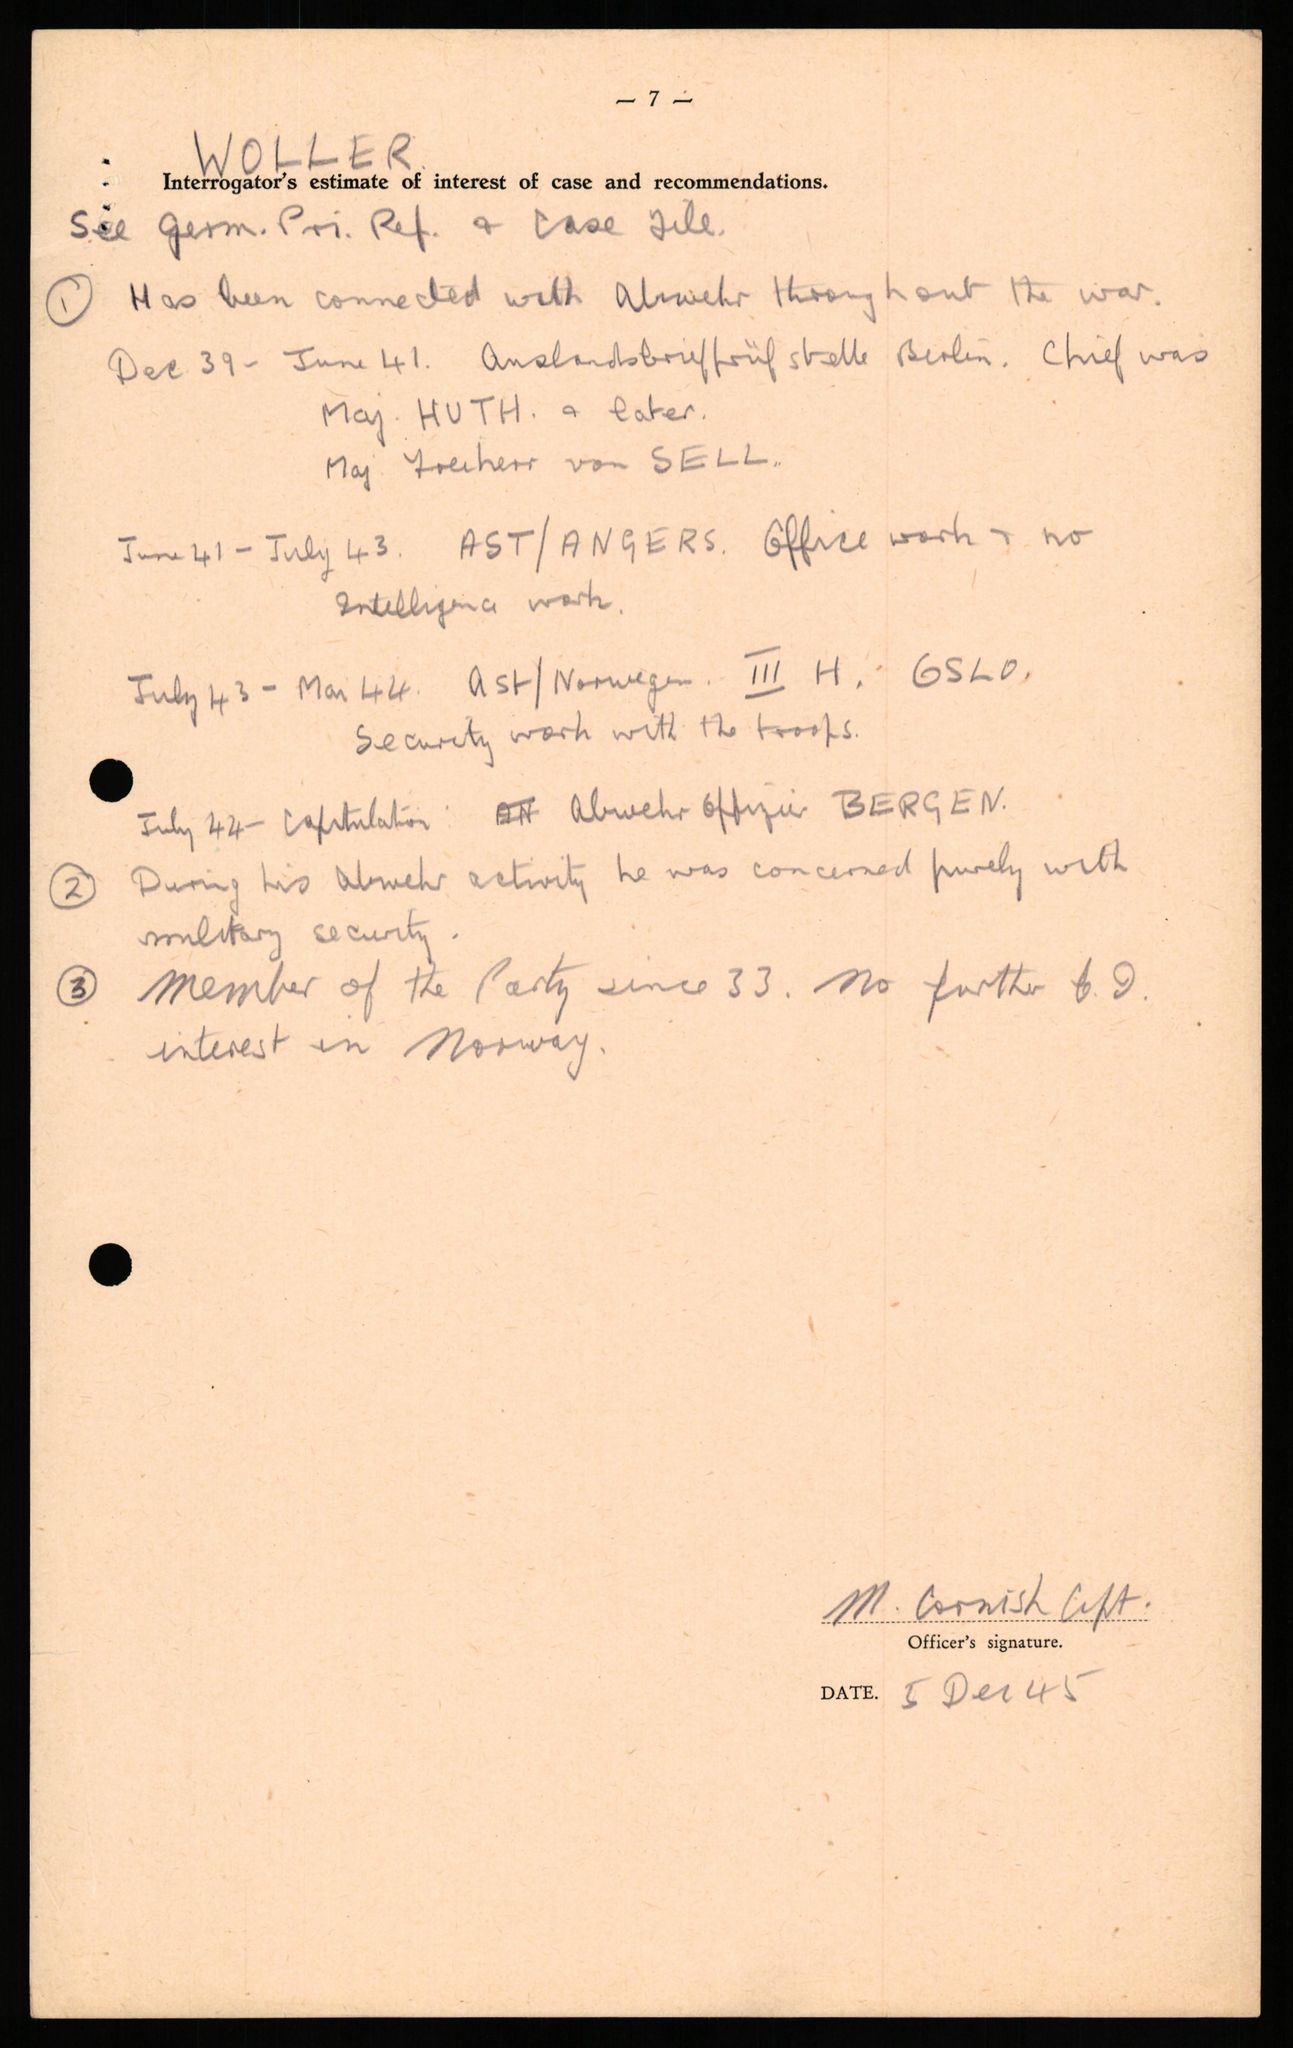 — 7 —
WOLLER.
Interrogator's estimate of interest of case and recommendations.
See Germ. Pri. Ref. & Case File.
① Has been connected with Abwehr throughout the war.
Dec 39 - June 41. Auslandsbriefprüfstelle Berlin. Chief was
Maj. HUTH. & later.
Maj Freiherr von SELL.
June 41 - July 43. AST/ANGERS. Office work & no
Intelligence work.
July 43 - Mar 44. Ast/Norwegen. III H. OSLO.
Security work with the troops.
July 44 - Capitulation: Abwehr Offizier BERGEN.
② During his Abwehr activity he was concerned purely with
military security.
③ Member of the Party since 33. No further C.I.
interest in Norway.
M. Cornish Capt.
Officer's signature.
DATE. 5 Dec 45